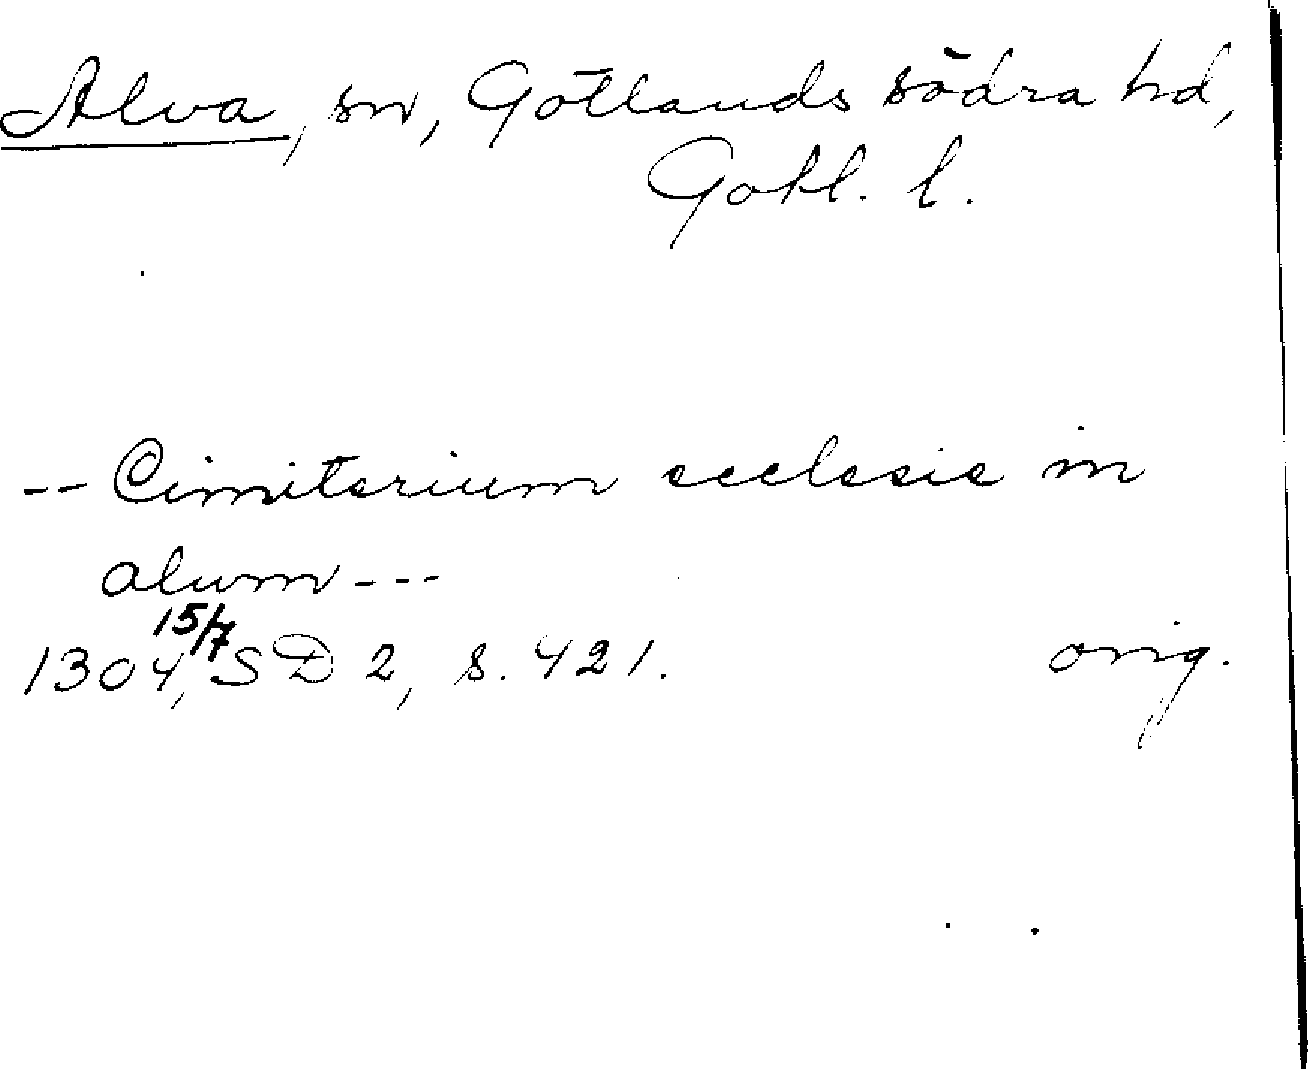 Alva, sn, Gotlands södra hd,
Gotl. l.
-- Cimiterium ecclesie in
alum ---
15/7
1304, SD 2, s. 421. orig.